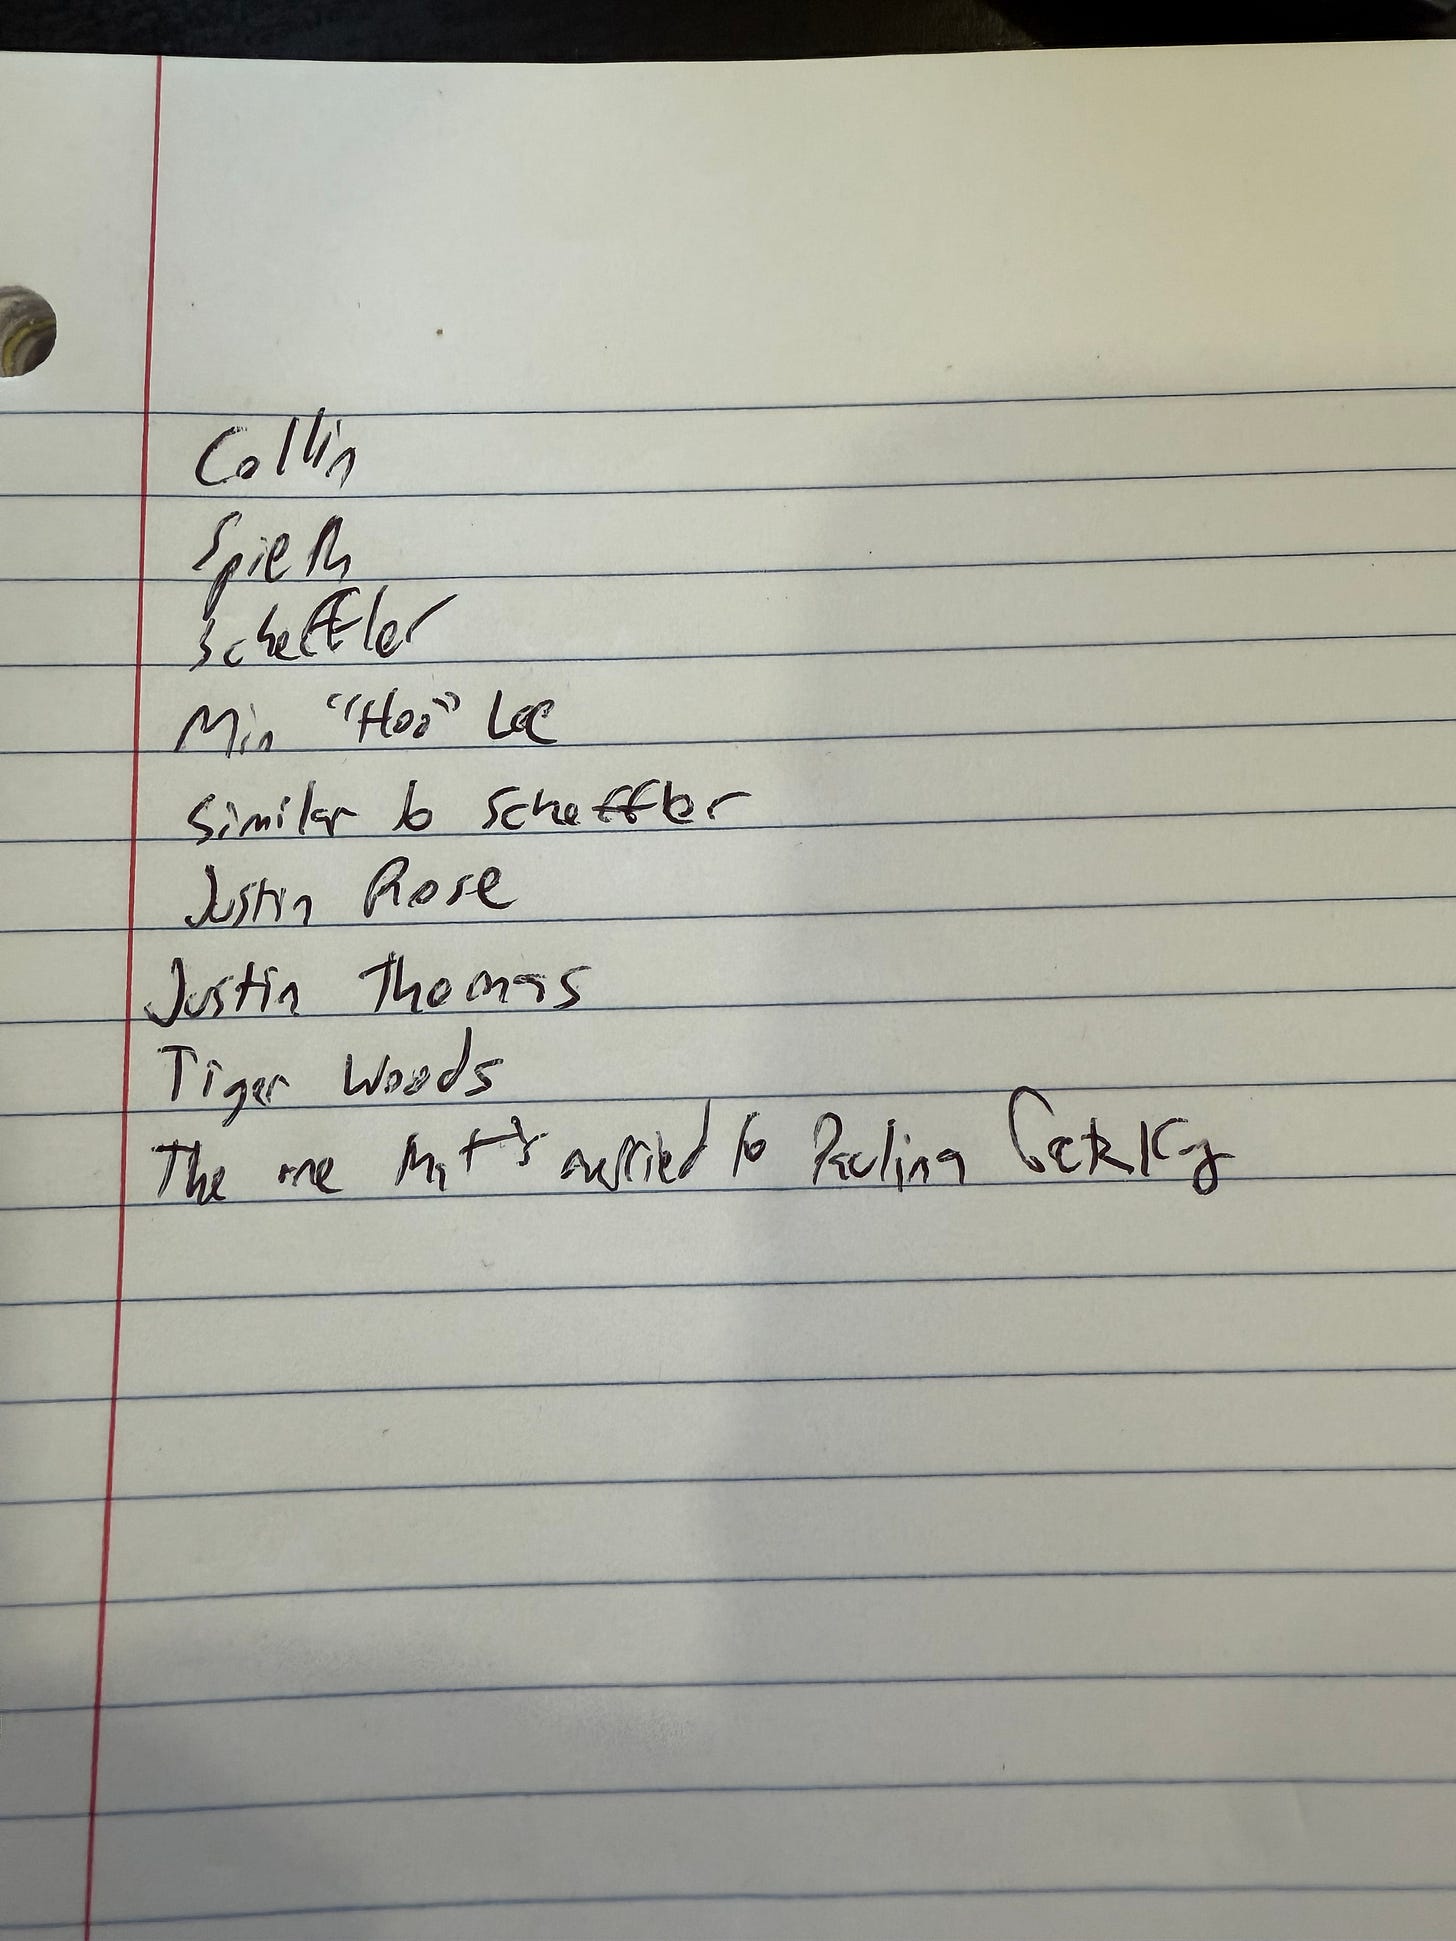 Collin
Spieth
Scheffler
Min "Hoo" Lee
Similar to Scheffler
Justin Rose
Justin Thomas
Tiger Woods
The one that's married to Paulina